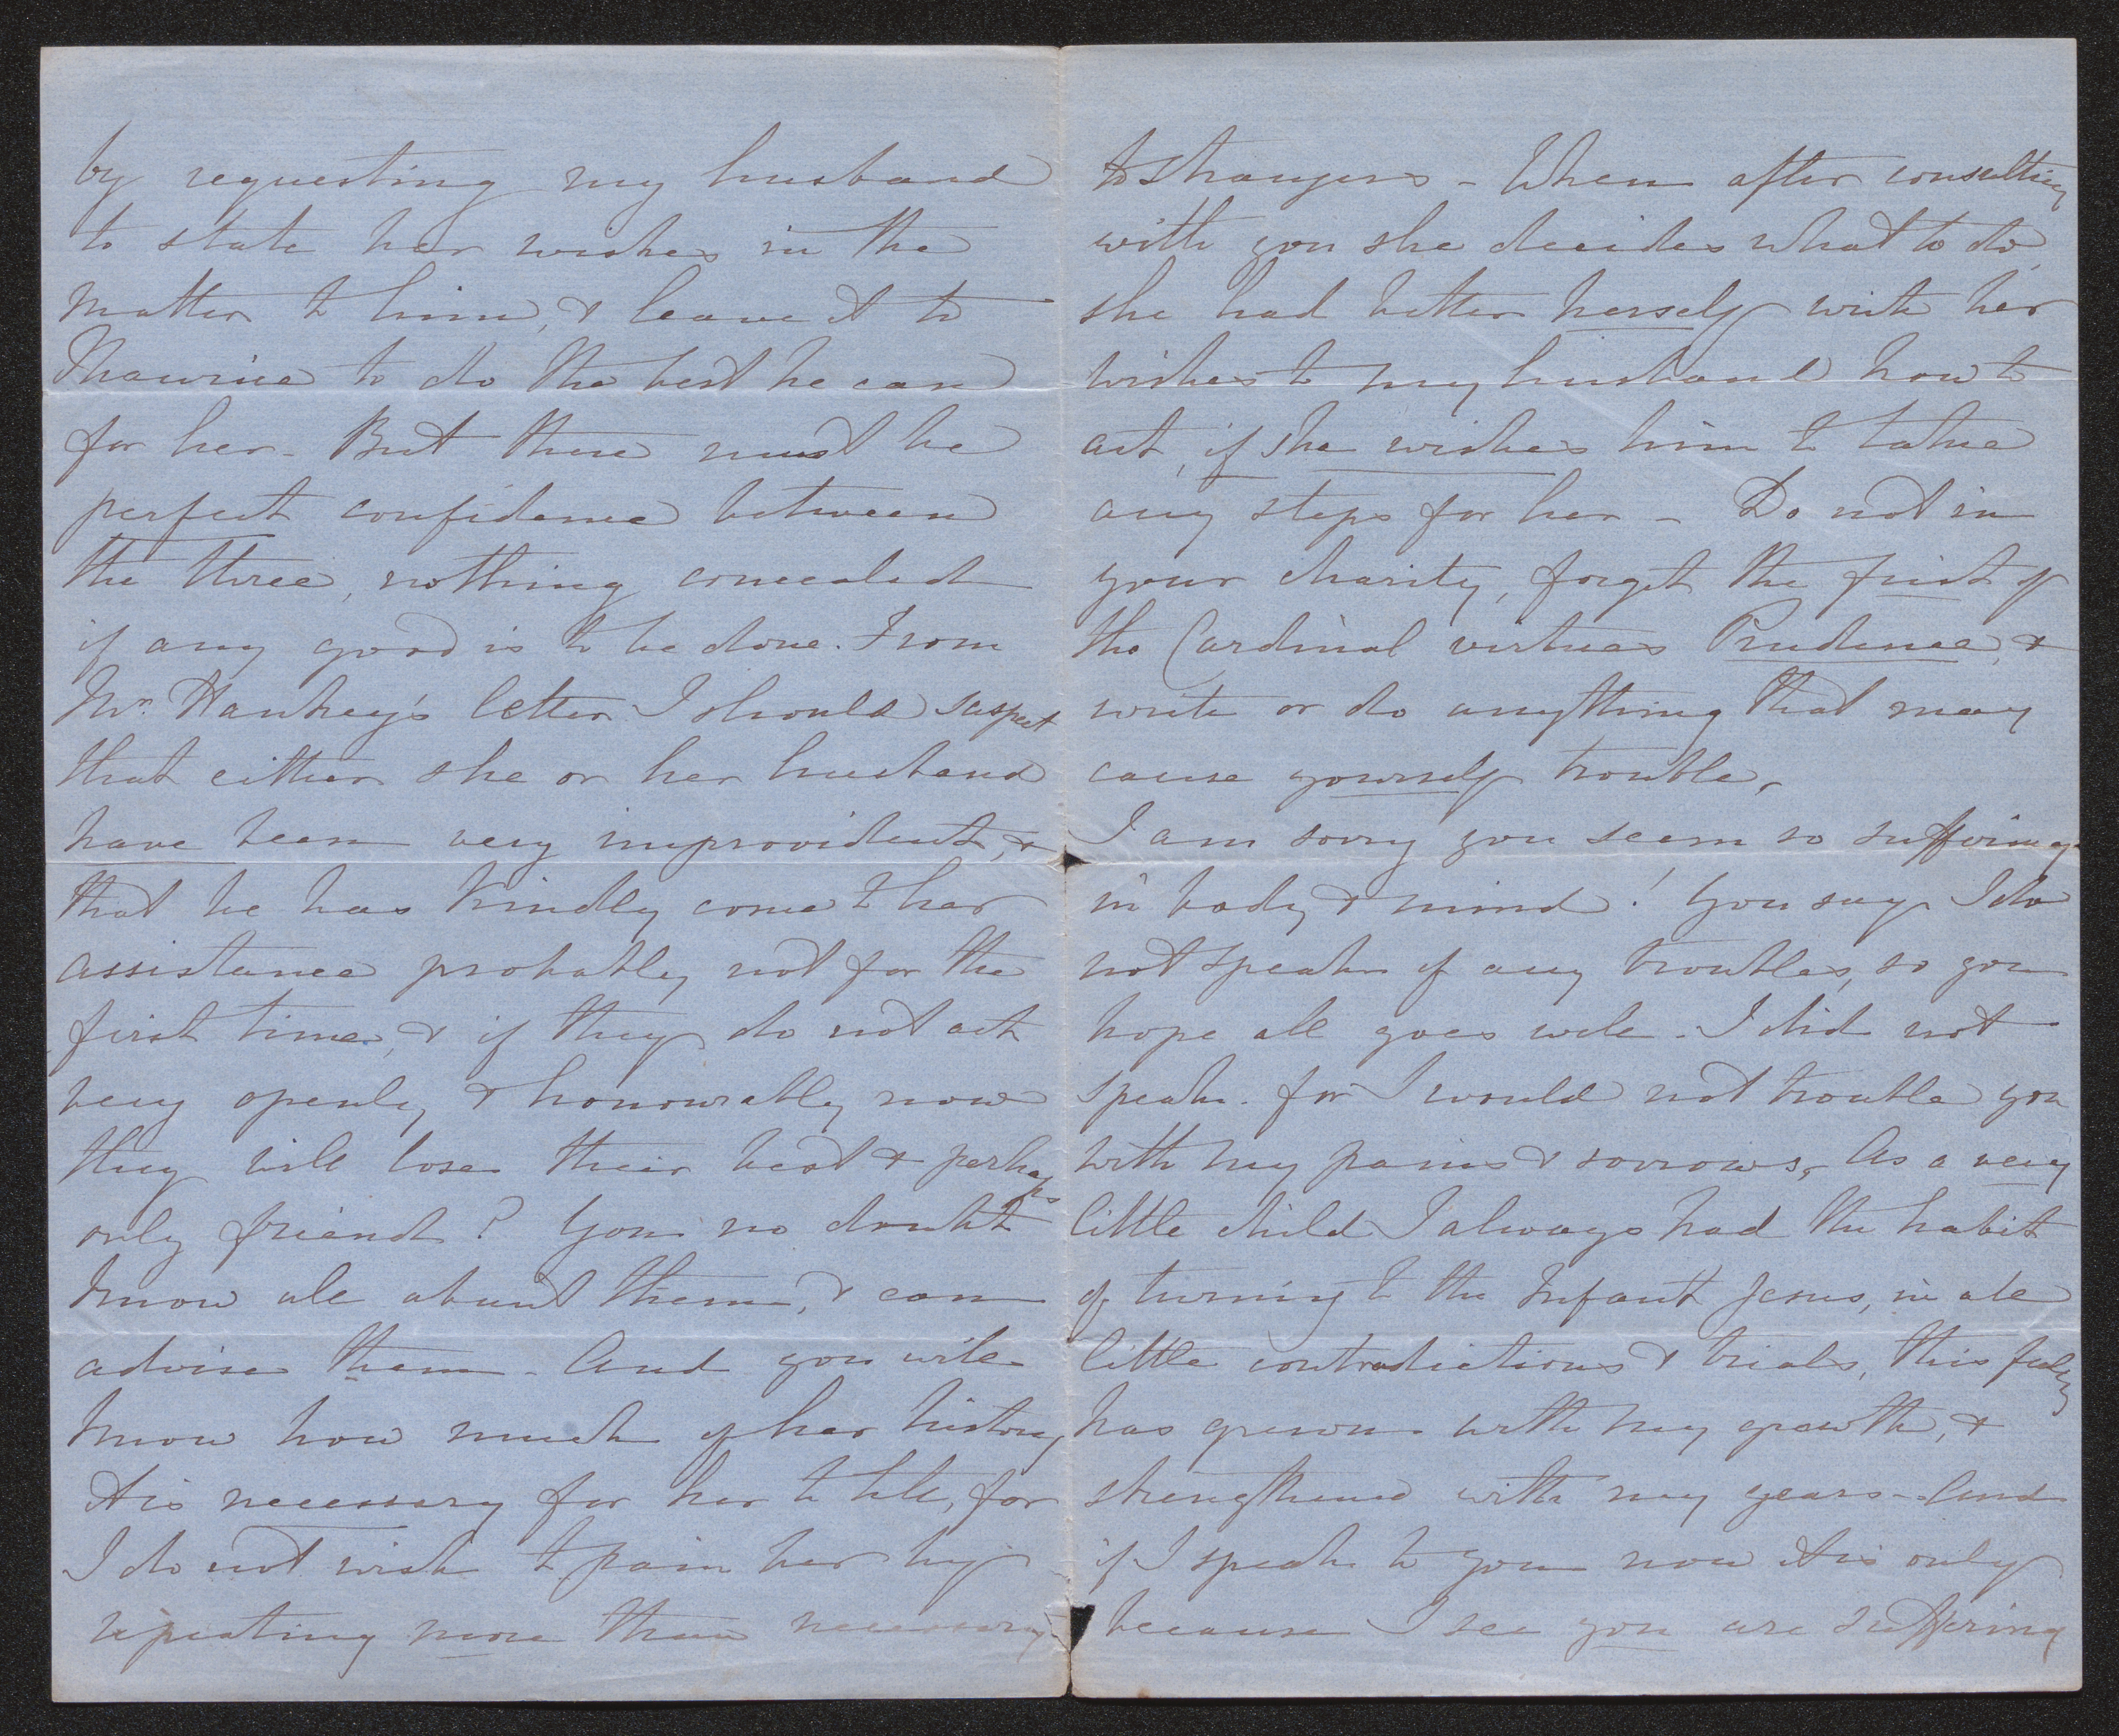 by requesting my husband
to state her wishes in the
matter to him, & leave it to
Maurice to do the best he can
for her - But there must be
perfect confidence between
the three, nothing concealed
if any good is to be done. From
Mr. Hankey's letter I should suspect
that either she or her husband
have been very improvident, &
that he has kindly come to her
assistance probably not for the
first time, & if they do not act
very openly, & honourably now
they will lose their best & perhaps
only friend? You no doubt
know all about them, & can
advise them - And you will
know how much of her history
it is necessary for her to tell, for
I do not wish to pain her by
repeating more than necessary
to strangers - When after consulting
with you she decides what to do,
she had better herself write her
wishes to my husband how to
act, if she wishes him to take
any steps for her - Do not in
your charity, forget the first of
the Cardinal virtues Prudence, &
write or do anything that may
cause yourself trouble,
I am sorry you seem so suffering
in body & mind! You say I do
not speak of any troubles, so you
hope all goes well - I did not
speak for I would not trouble you
with my pains & sorrows, As a very
little child I always had the habit
of turning to the Infant Jesus, in all
little contradictions & trials, this feeling
has grown with my growth, &
strengthened with my years - And
if I speak to you now it is only
because I see you are suffering